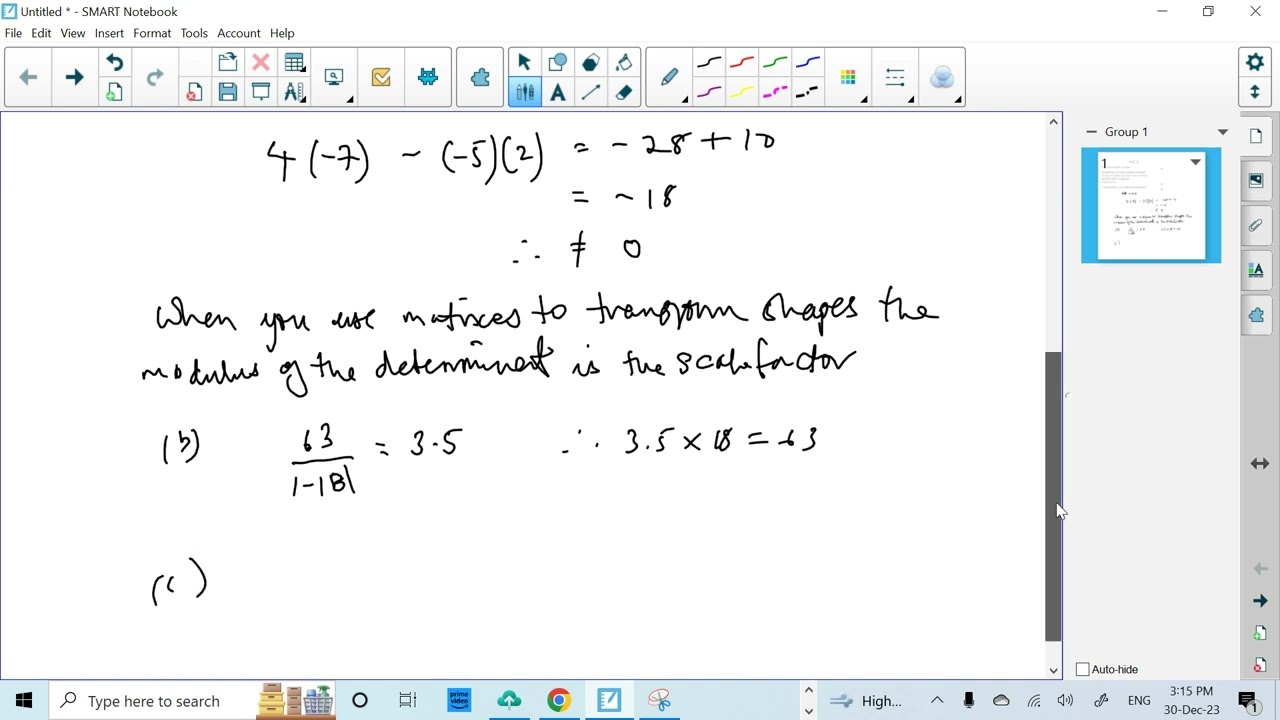 Untitled * - SMART Notebook
File Edit View Insert Format Tools Account Help
Group 1
1
4 (-7) - (-5)(2) = - 28 + 10
= - 18
∴ ≠ 0
When you use matrices to transform shapes the
modulus of the determinant is the scale factor
(b) 63/|-18| = 3.5 ∴ 3.5 × 18 = 63
(c)
Auto-hide
Type here to search
prime video
High...
ENG
3:15 PM
30-Dec-23
1